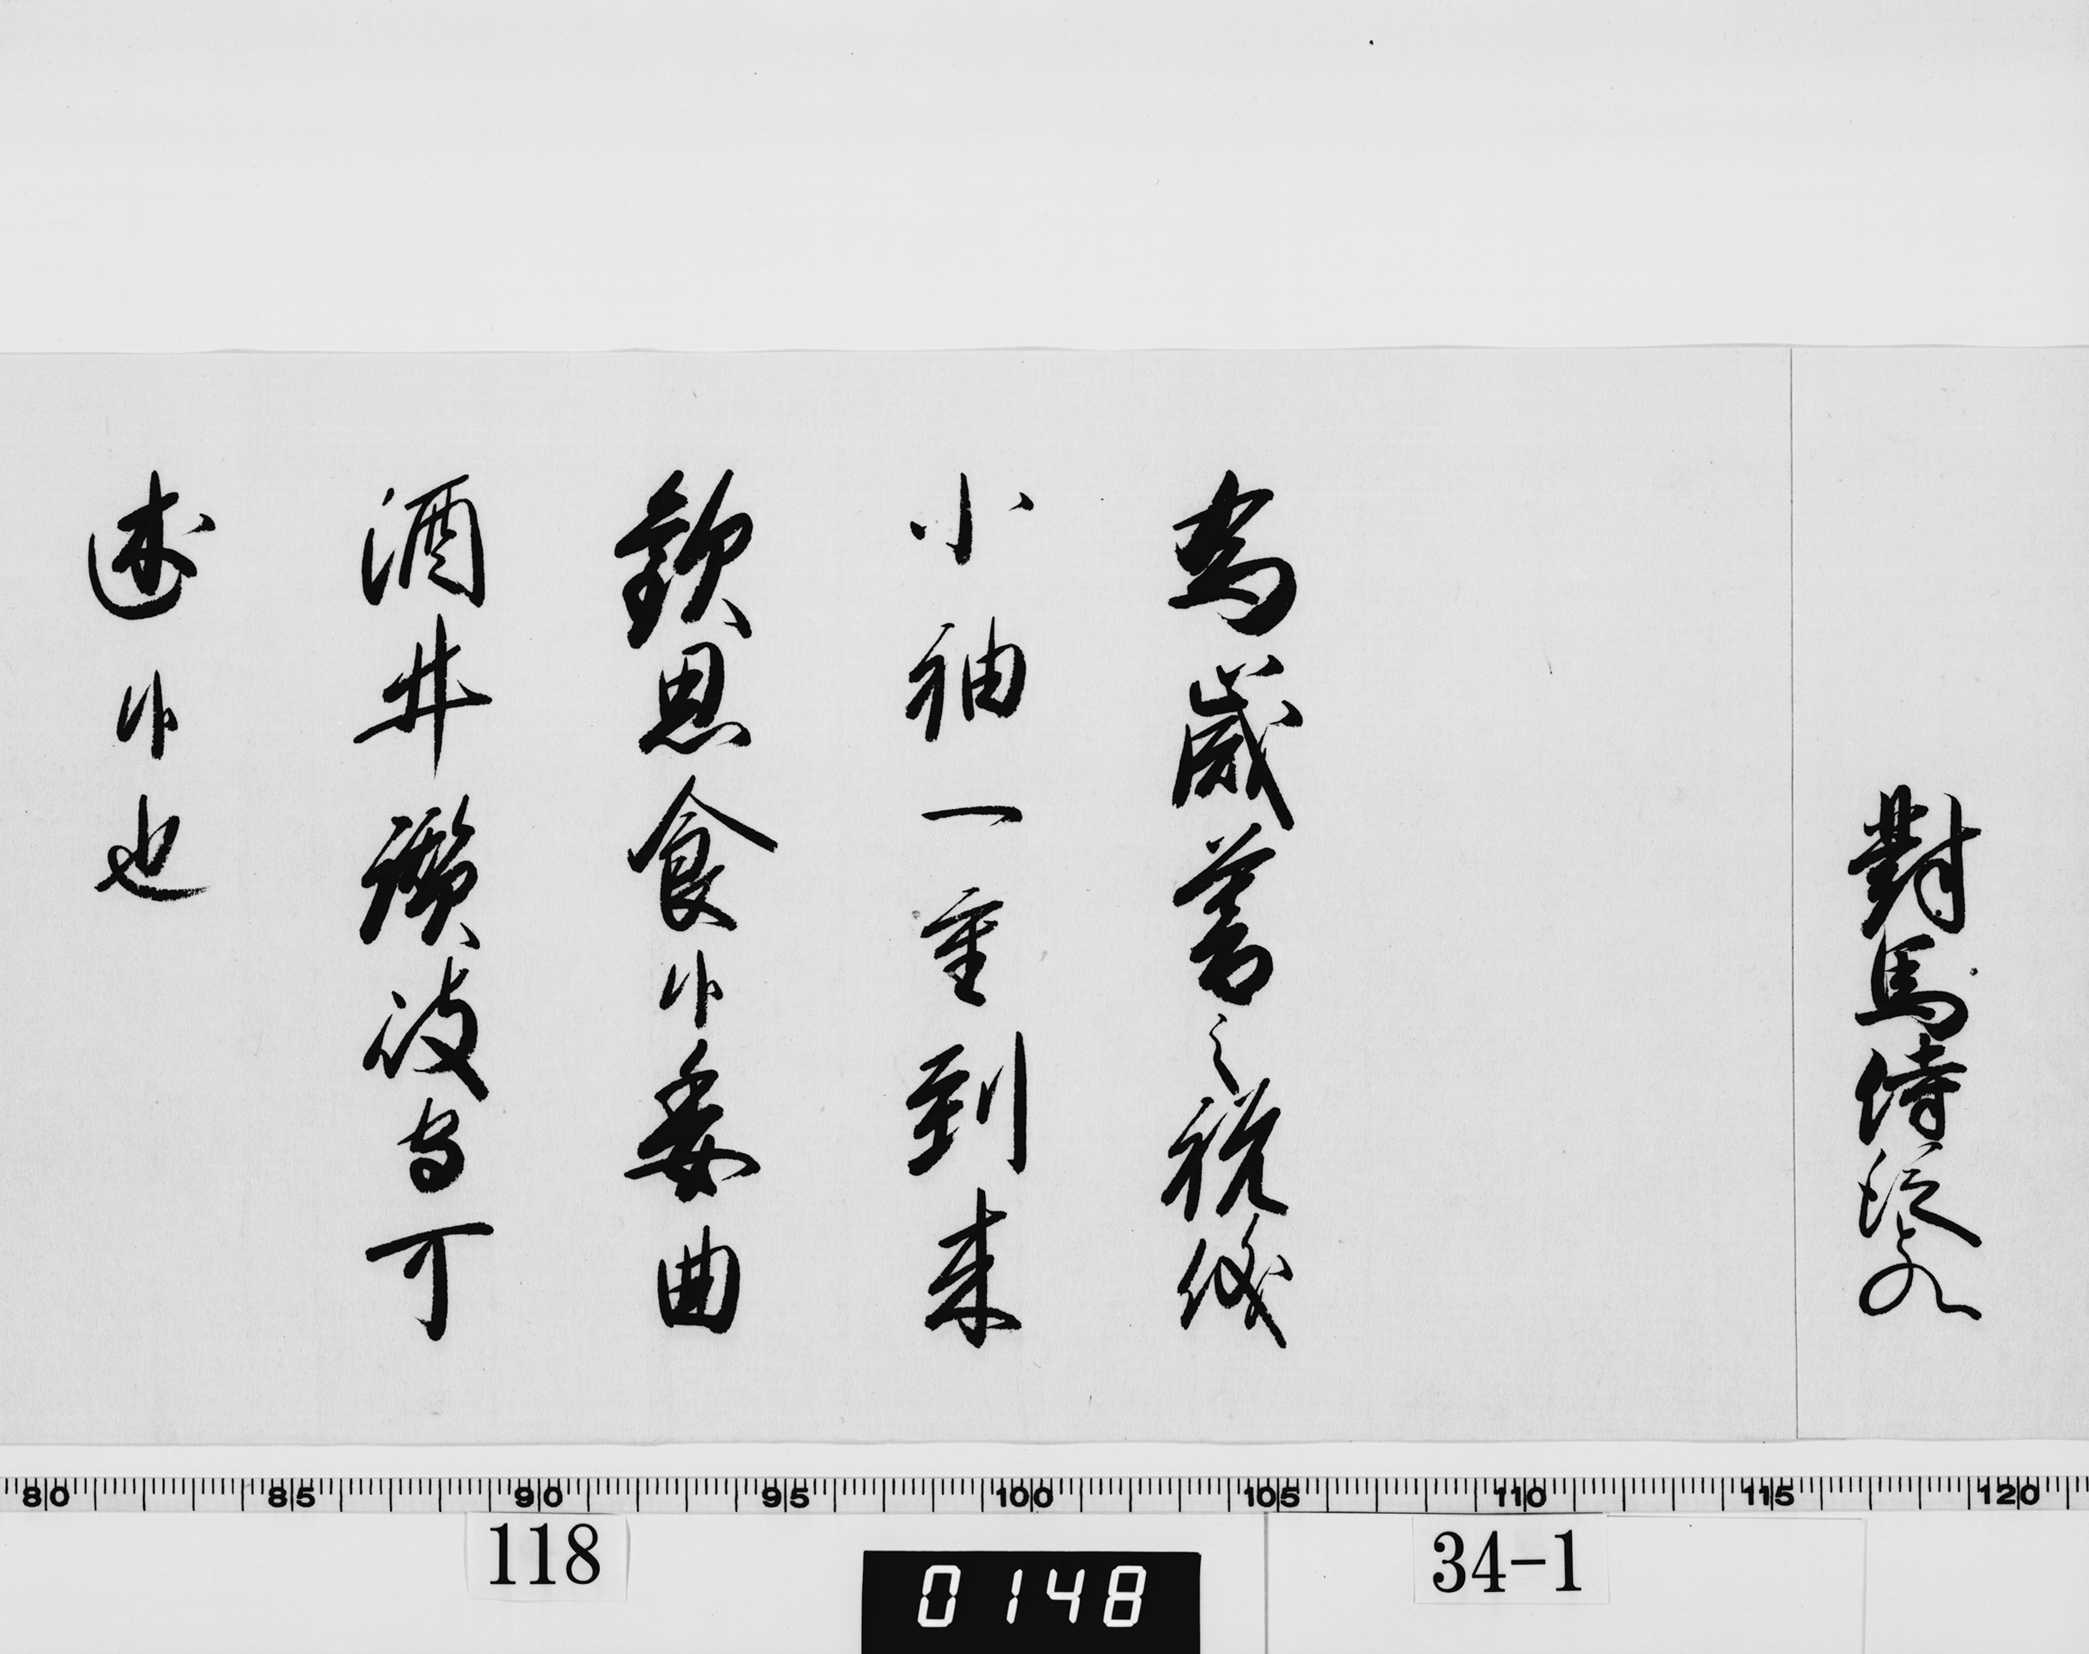 對馬侍従との
為歳暮之祝儀
小袖一重到来
歓思食候委曲
酒井讃岐守可
述候也
80 85 90 95 100 105 110 115 120
118
0148
34-1